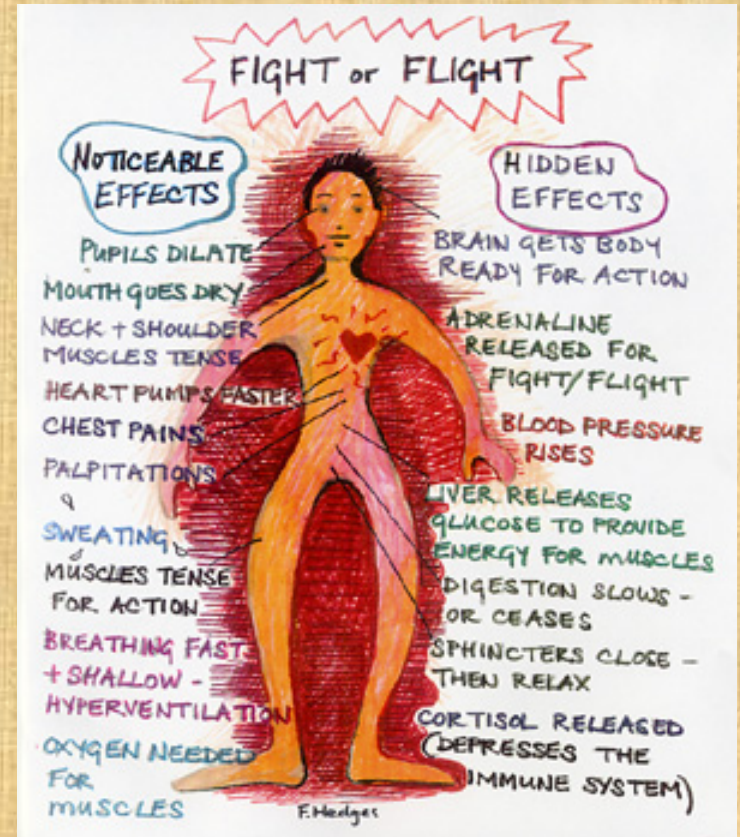 FIGHT or FLIGHT
NOTICEABLE
EFFECTS
PUPILS DILATE
MOUTH GOES DRY
NECK + SHOULDER
MUSCLES TENSE
HEART PUMPS FASTER
CHEST PAINS
PALPITATIONS
SWEATING
MUSCLES TENSE
FOR ACTION
BREATHING FAST
+ SHALLOW -
HYPERVENTILATION
OXYGEN NEEDED
FOR
MUSCLES
HIDDEN
EFFECTS
BRAIN GETS BODY
READY FOR ACTION
ADRENALINE
RELEASED FOR
FIGHT/FLIGHT
BLOOD PRESSURE
RISES
LIVER RELEASES
GLUCOSE TO PROVIDE
ENERGY FOR MUSCLES
DIGESTION SLOWS -
OR CEASES
SPHINCTERS CLOSE -
THEN RELAX
CORTISOL RELEASED
(DEPRESSES THE
IMMUNE SYSTEM)
F.Hedges